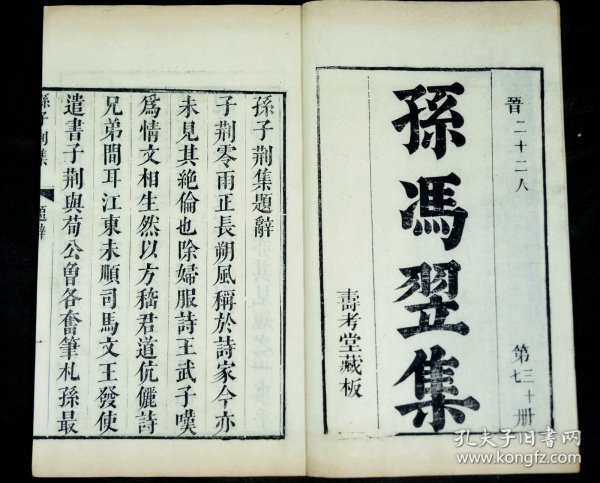 晉二十二人
孫馮翌集
第三十七册
壽考堂藏板
孫子荆集題辭
子荆零雨正長朔風稱於詩家今亦
未見其絶倫也除婦服詩王武子嘆
爲情文相生然以方嵇君道伉儷詩
兄弟間耳江東未順司馬文王發使
遺書子荆與荀公曾各奮筆札孫最
孫子荆集
題辭
一
孔夫子旧书网
www.kongfz.com